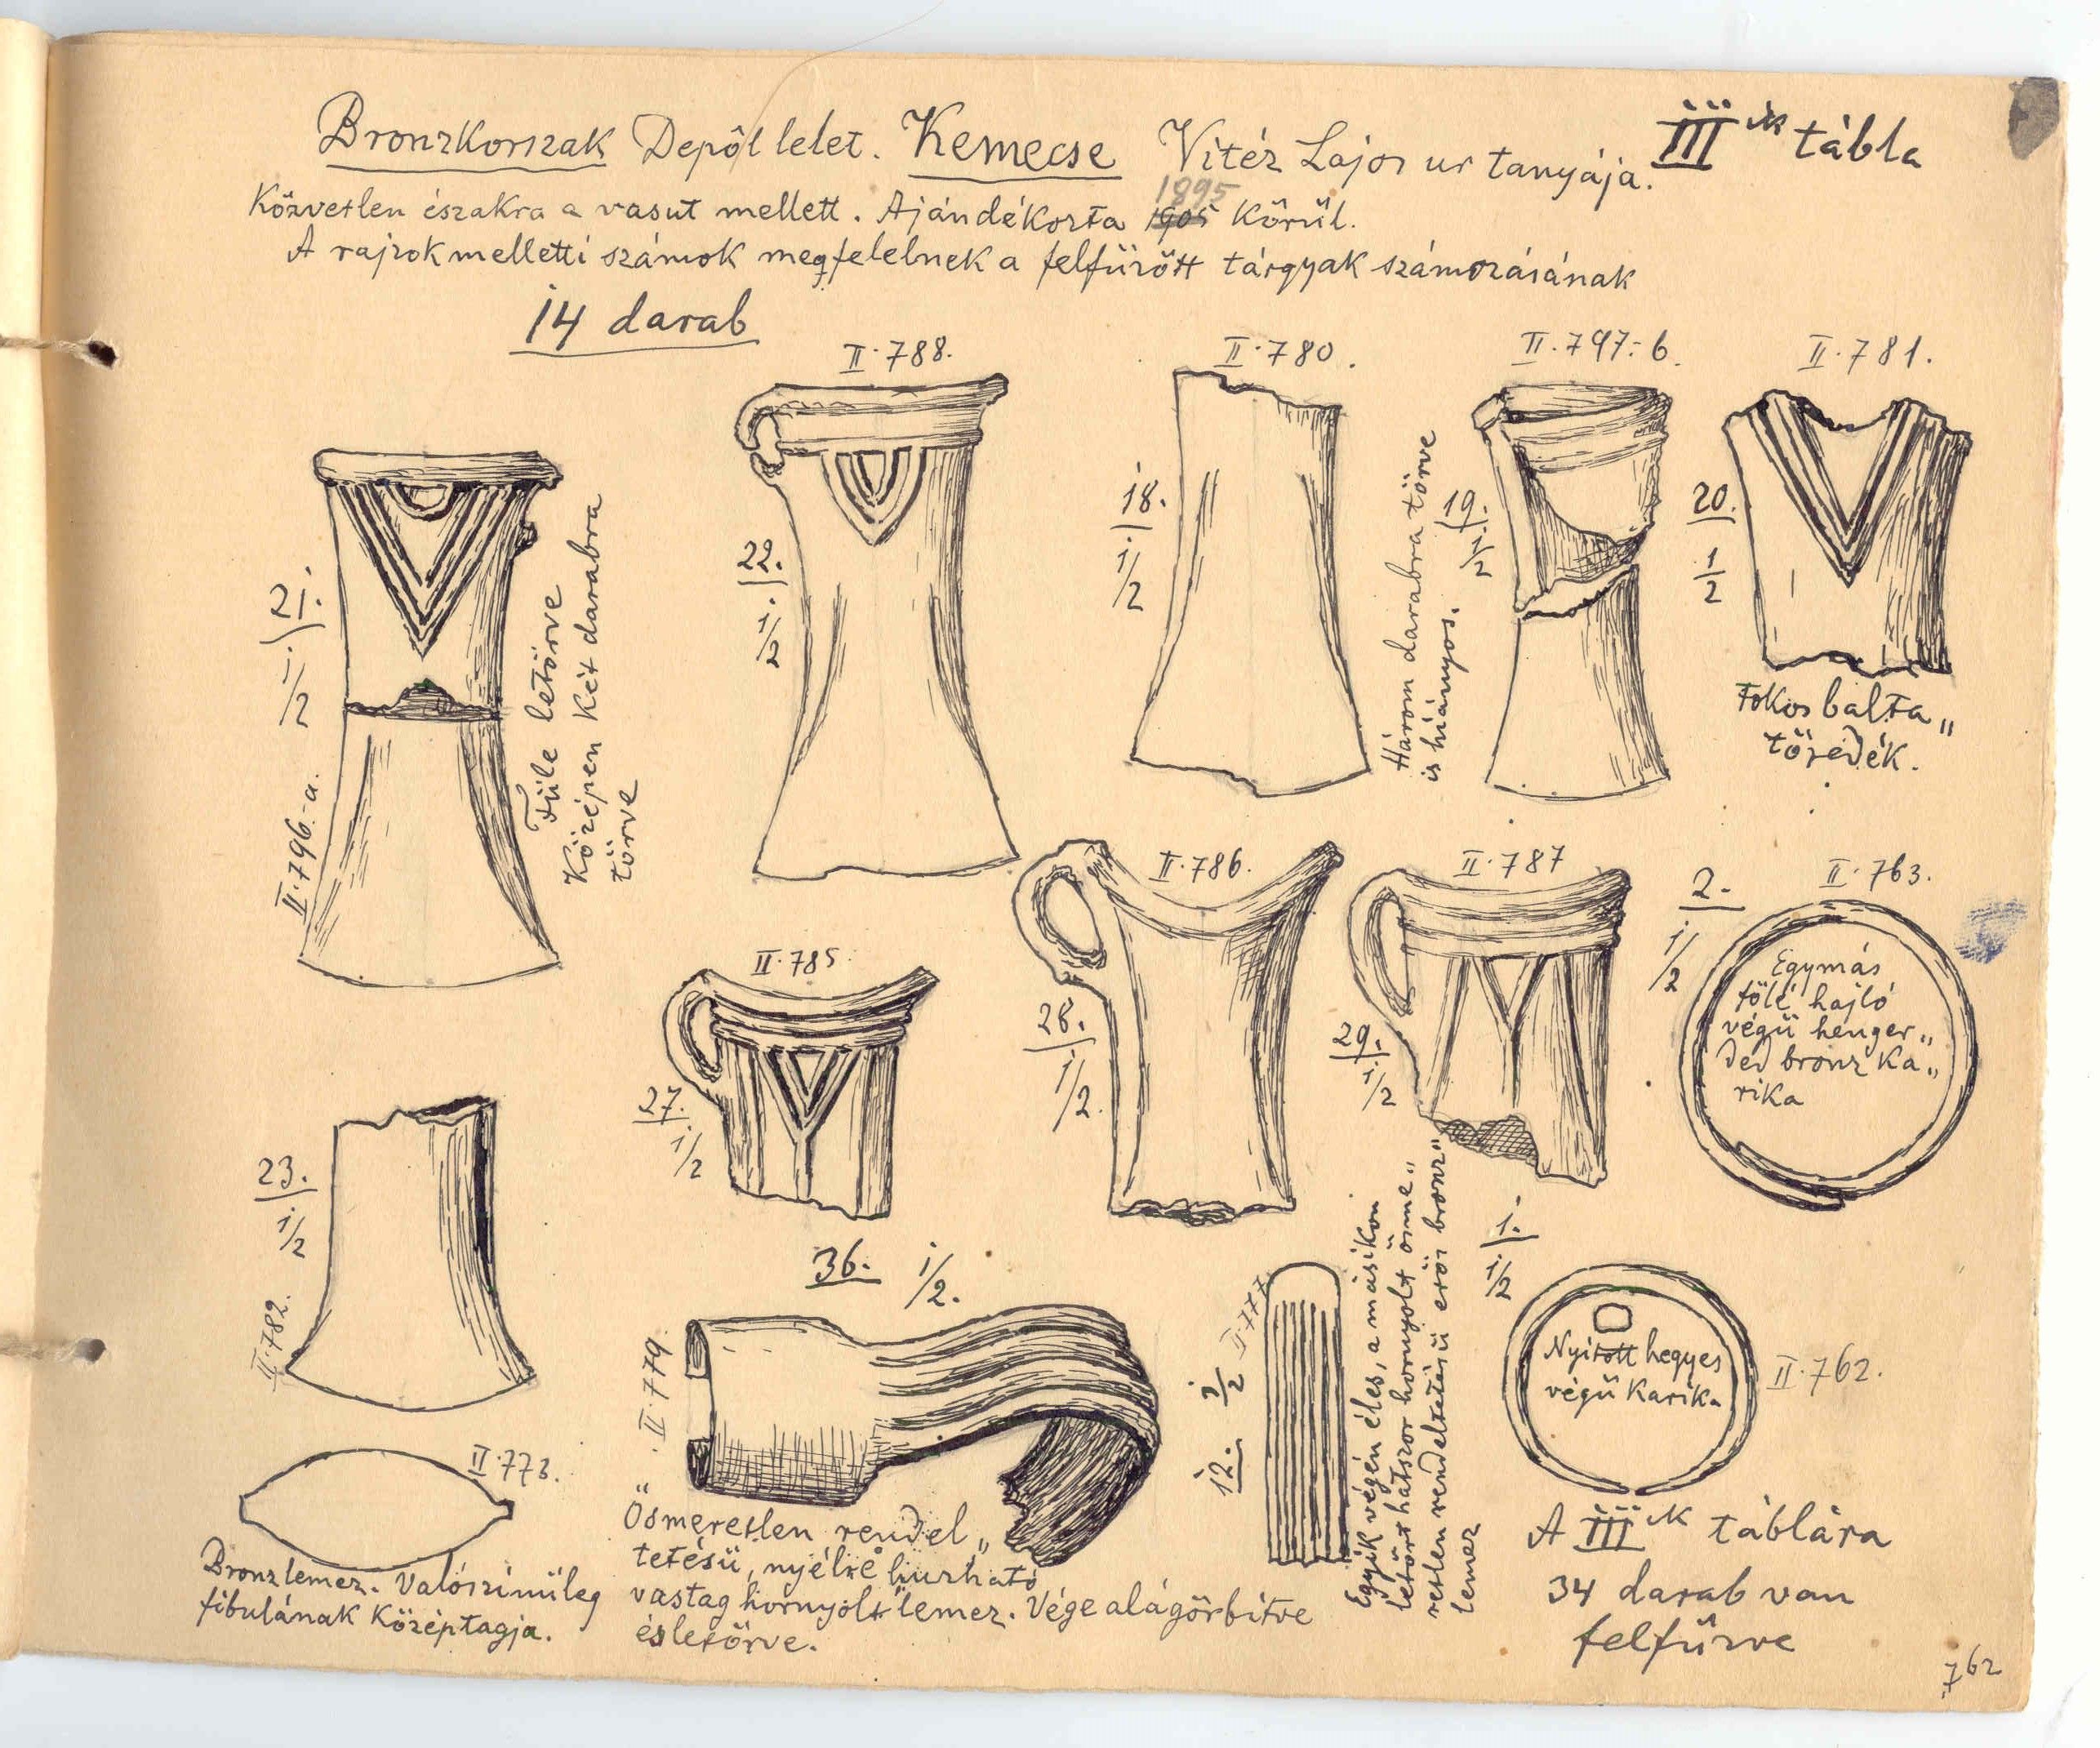 Bronzkorszak Depôt lelet. Kemecse Vitéz Lajos ur tanyája. III ik tábla
Közvetlen északra a vasut mellett. Ajándékozta 1905 1895 körül.
A rajzok melletti számok megfelelnek a felfüzött tárgyak számozásának
14 darab
II.788.
II.780.
II.797.-b.
II.781.
21. 1/2
II.796.-a.
Füle letörve
Középen két darabra
törve
22. 1/2
18. 1/2
Három darabra törve
is hiányos.
19. 1/2
20. 1/2
Fokos balta „
töredék.
II.785.
27. 1/2
II.786.
28. 1/2.
II.787
29. 1/2
2. 1/2
II.763.
Egymás
fölé hajló
végü henger „
ded bronz ka „
rika
23. 1/2
II.782.
36. 1/2.
II.779.
Ösmeretlen rendel „
tetésü, nyélre huzható
vastag hornyolt lemez. Vége alágörbitve
és letörve.
12. 1/2 II.777
Egyik végén éles, a másikon
letört hatszor hornyolt ösme „
retlen rendeltetésü erös bronz „
lemez
1. 1/2
Nyitott hegyes
végü karika
II.762.
II.773.
Bronzlemez. Valószinüleg
fibulának középtagja.
A III ik táblára
34 darab van
felfüzve
762